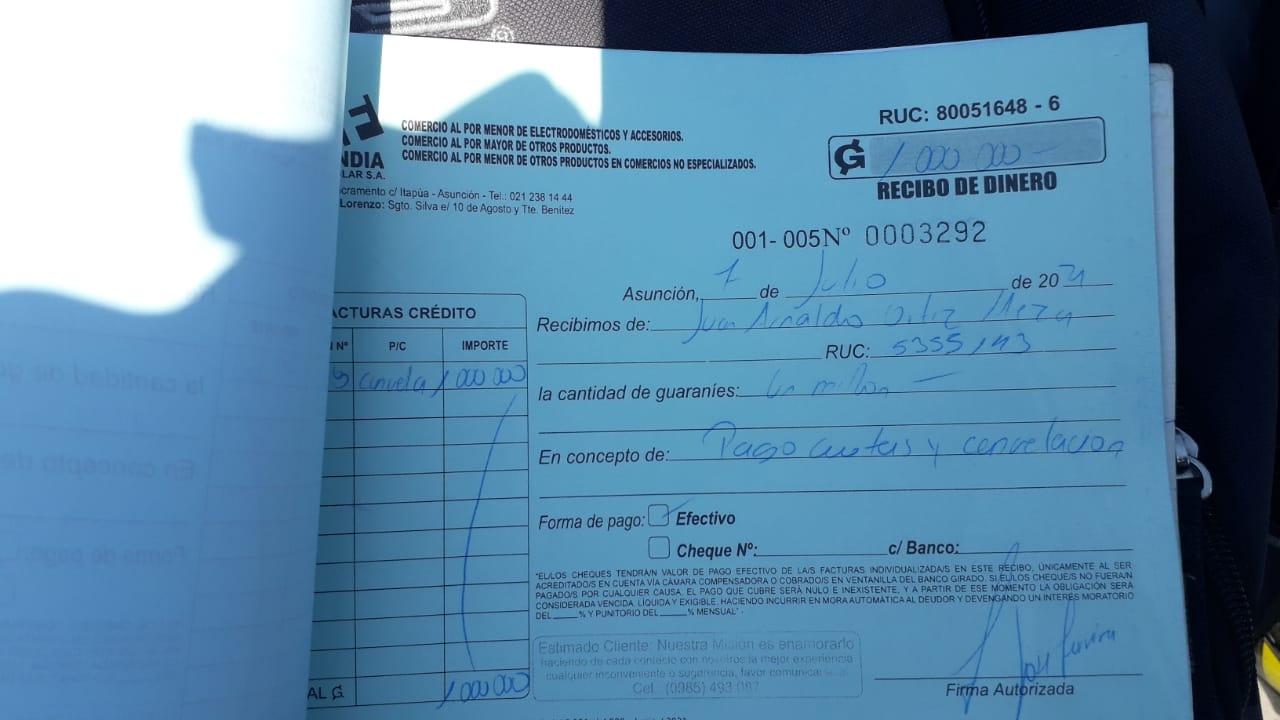 NDIA
LAR S.A.
COMERCIO AL POR MENOR DE ELECTRODOMÉSTICOS Y ACCESORIOS.
COMERCIO AL POR MAYOR DE OTROS PRODUCTOS.
COMERCIO AL POR MENOR DE OTROS PRODUCTOS EN COMERCIOS NO ESPECIALIZADOS.
cramento c/ Itapúa - Asunción - Tel.: 021 238 14 44
Lorenzo: Sgto. Silva e/ 10 de Agosto y Tte. Benitez
RUC: 80051648 - 6
₲ 1 000 000 -
RECIBO DE DINERO
001- 005 Nº 0003292
Asunción, de Julio de 20 21
Recibimos de: Juan Arnaldo Ortiz Meza
RUC: 5355143
la cantidad de guaraníes: Un millon —
En concepto de: Pago cuotas y cancelacion
Forma de pago: Efectivo
Cheque Nº: c/ Banco:
"EL/LOS CHEQUES TENDRA/N VALOR DE PAGO EFECTIVO DE LA/S FACTURAS INDIVIDUALIZADA/S EN ESTE RECIBO, ÚNICAMENTE AL SER
ACREDITADO/S EN CUENTA VÍA CÁMARA COMPENSADORA O COBRADO/S EN VENTANILLA DEL BANCO GIRADO. SI EL/LOS CHEQUE/S NO FUERA/N
PAGADO/S POR CUALQUIER CAUSA, EL PAGO QUE CUBRE SERÁ NULO E INEXISTENTE, Y A PARTIR DE ESE MOMENTO LA OBLIGACIÓN SERÁ
CONSIDERADA VENCIDA, LÍQUIDA Y EXIGIBLE. HACIENDO INCURRIR EN MORA AUTOMÁTICA AL DEUDOR Y DEVENGANDO UN INTERÉS MORATORIO
DEL % Y PUNITORIO DEL % MENSUAL" -
Estimado Cliente: Nuestra Misión es enamorarlo
haciendo de cada contacto con nosotros la mejor experiencia
cualquier inconveniente o sugerencia, favor comunicar
Cel. (0985) 493 087
Firma Autorizada
ACTURAS CRÉDITO
Nº P/C IMPORTE
cancela 1 000 000
AL ₲. 1 000 000